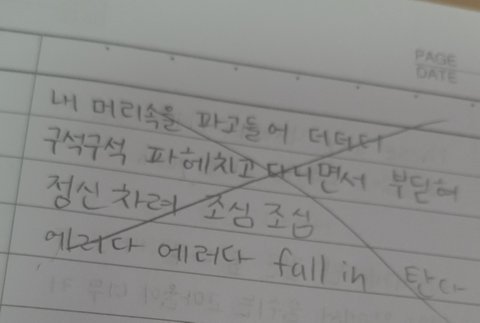 PAGE
DATE
내 머리속을 파고들어 더더더
구석구석 파헤치고 다니면서 부딛혀
정신 차려 조심 조심
에러다 에러다 fall in 탄다